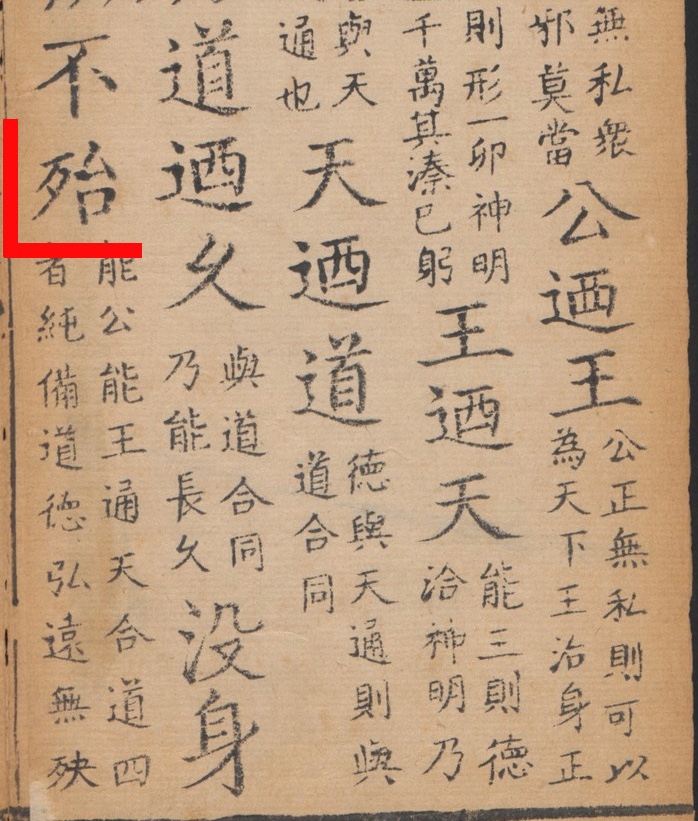 無私衆
邪莫當
公迺王
公正無私則可以
為天下王治身正
則形一卯神明
千萬其溱已躬
王迺天
能三則德
洽神明乃
與天
通也
天迺道
德與天通則與
道合同
道迺久
與道合同
乃能長久
没身
不殆
能公能王通天合道四
者純備道德弘遠無殃